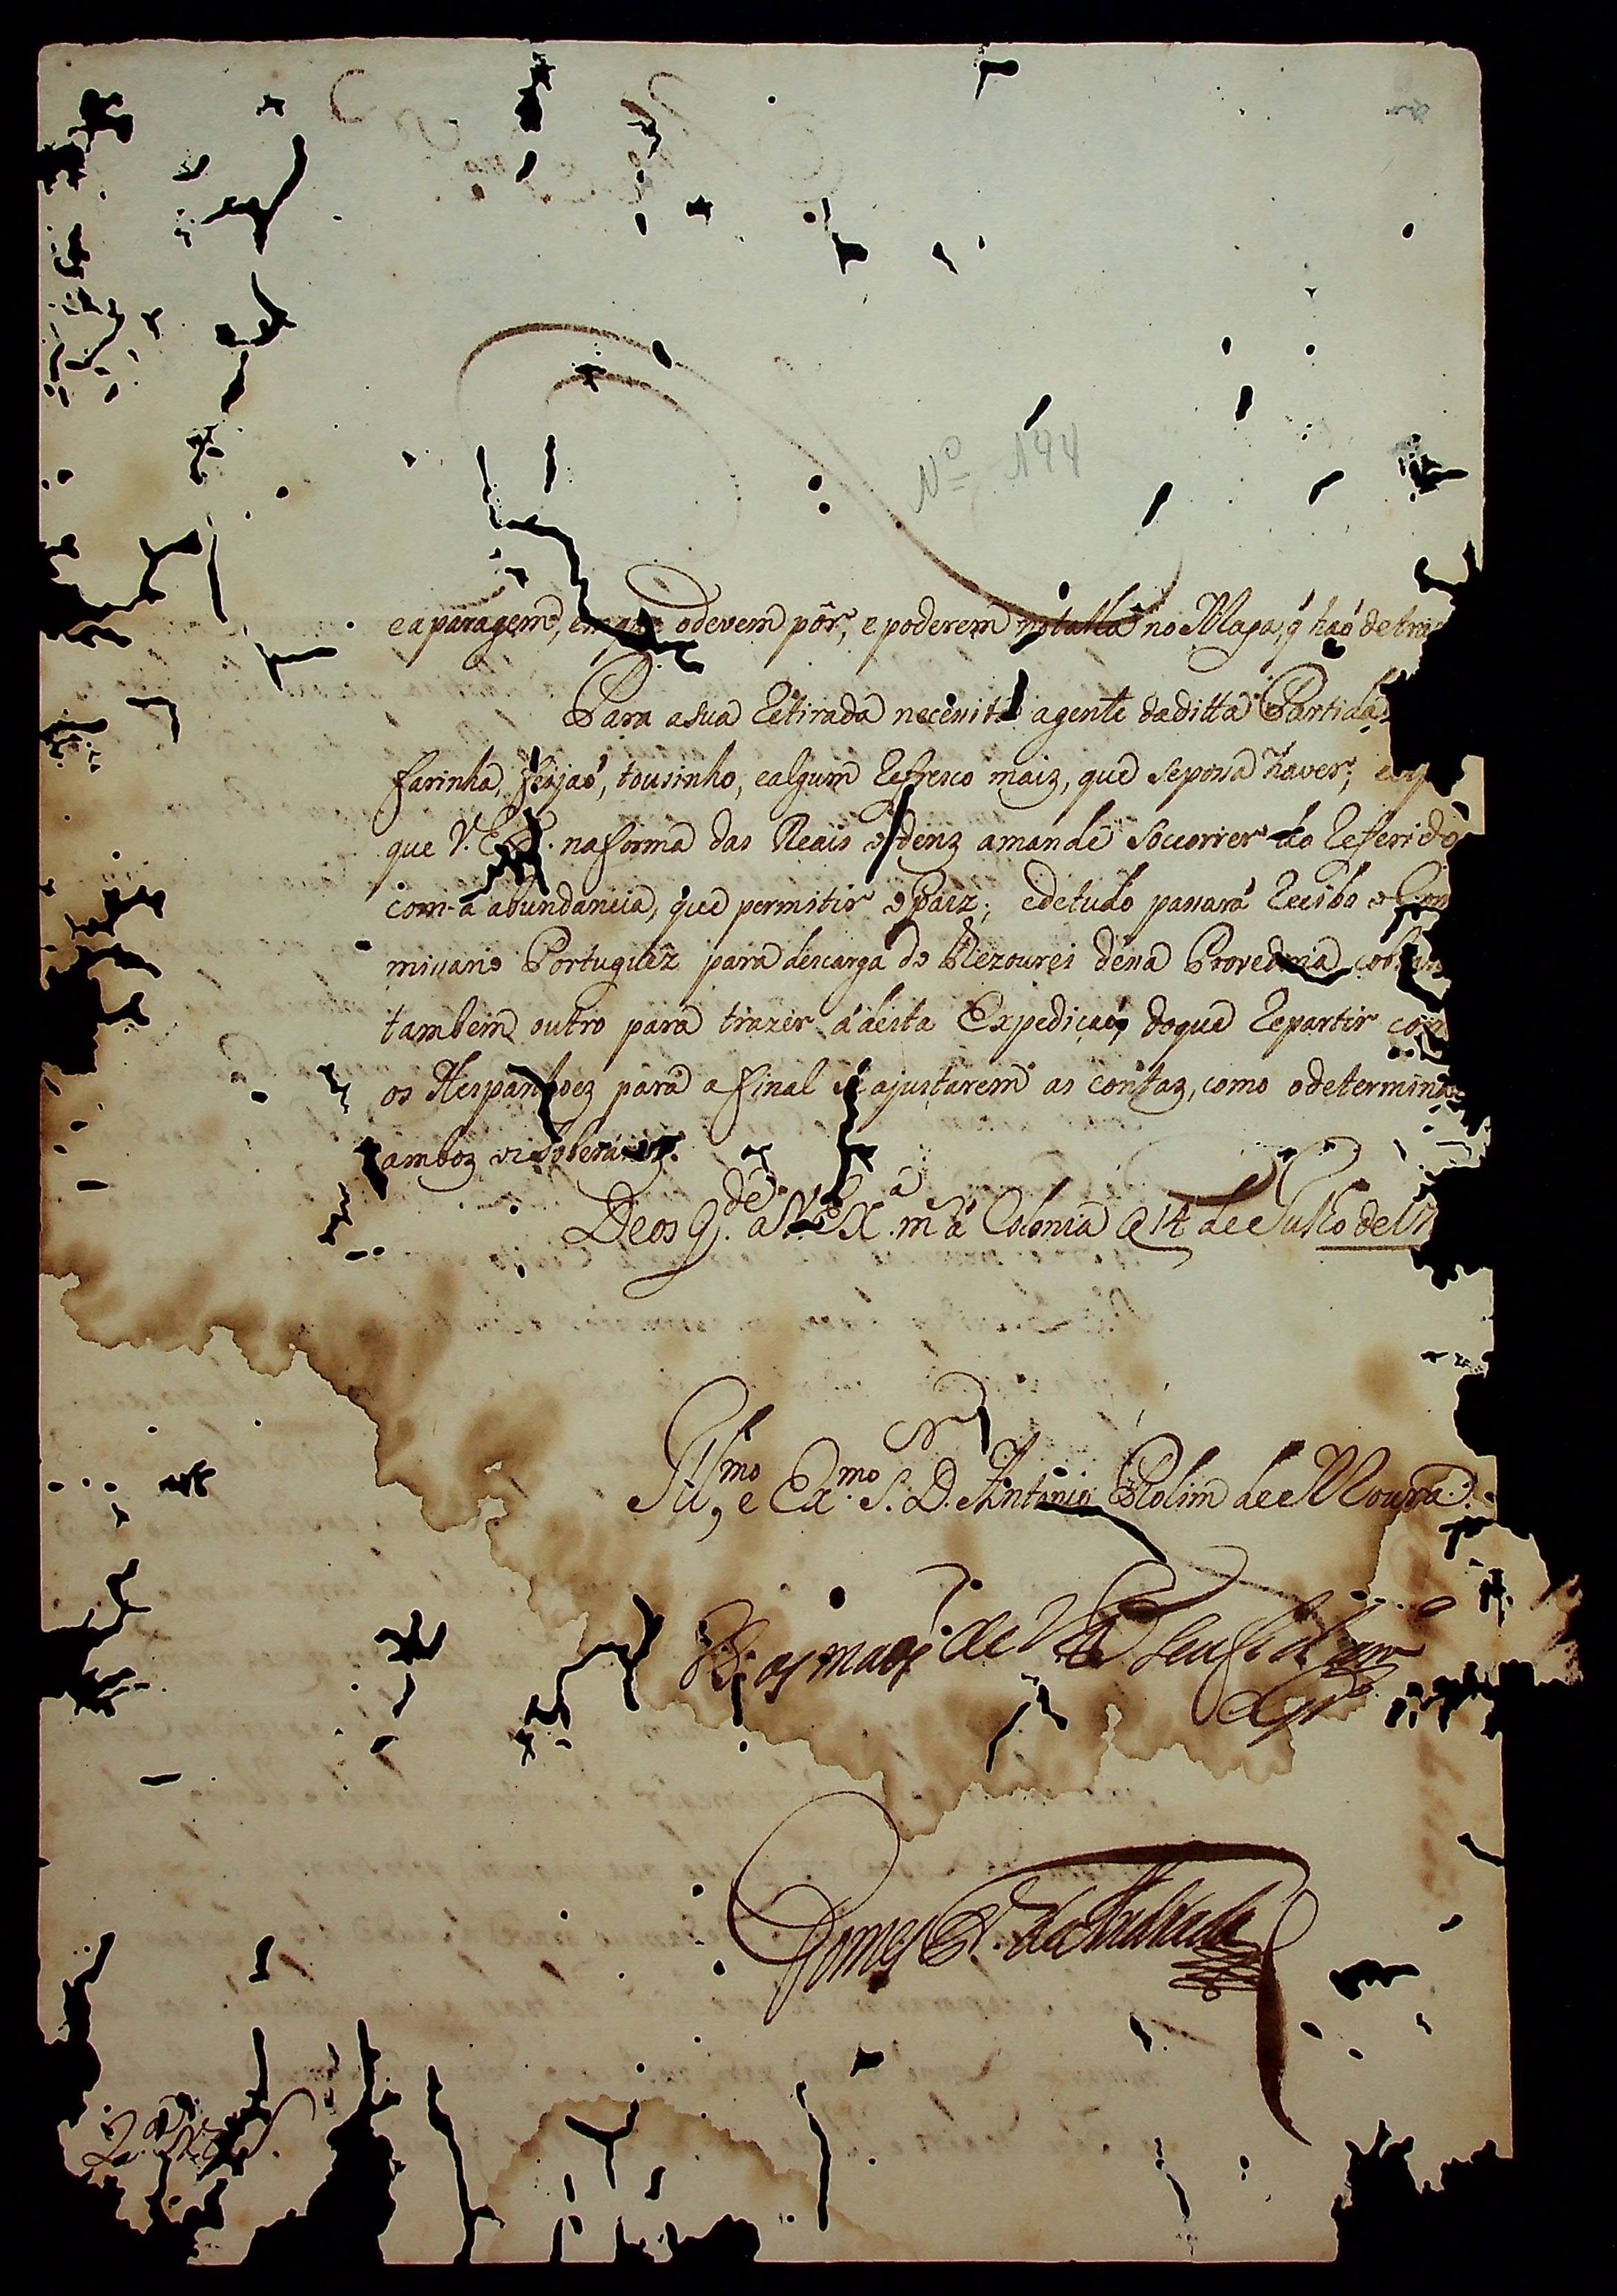 Nº 144
e a paragem, em que o devem pôr, e poderem notalla no Mapa, q̃ haõ de tra
Para a sua Retirada necessita a gente da ditta Partida
farinha, feijaõ, tousinho, e algum Refresco mais, que se possa haver;
que V. Exª. na forma das Reais ordenz a mande soccorrer do Referido
com a abundancia, que permitir o Paiz; e de tudo passará Recibo o Com
missario Portuguêz para descarga do Thezourei dessa Provedoria
tambem outro para trazer a desta Expediçaõ, do que Repartir com
os Hespanhoez para a final se ajustarem as contaz, como o determina
amboz os Soberanoz.
Deos G.de a V. Exª. m.ª aª Colonia a 14 de Julho de 17
Ill.mo e Ex.mo S.r D. Antonio Rolim de Moura.
B. as maõs de V. Exª seu
Gomes Fr. de Andrada